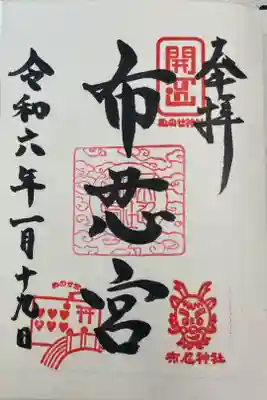 奉拝
開運
ぬのせ神社
布忍宮
令和六年一月十九日
布忍神社